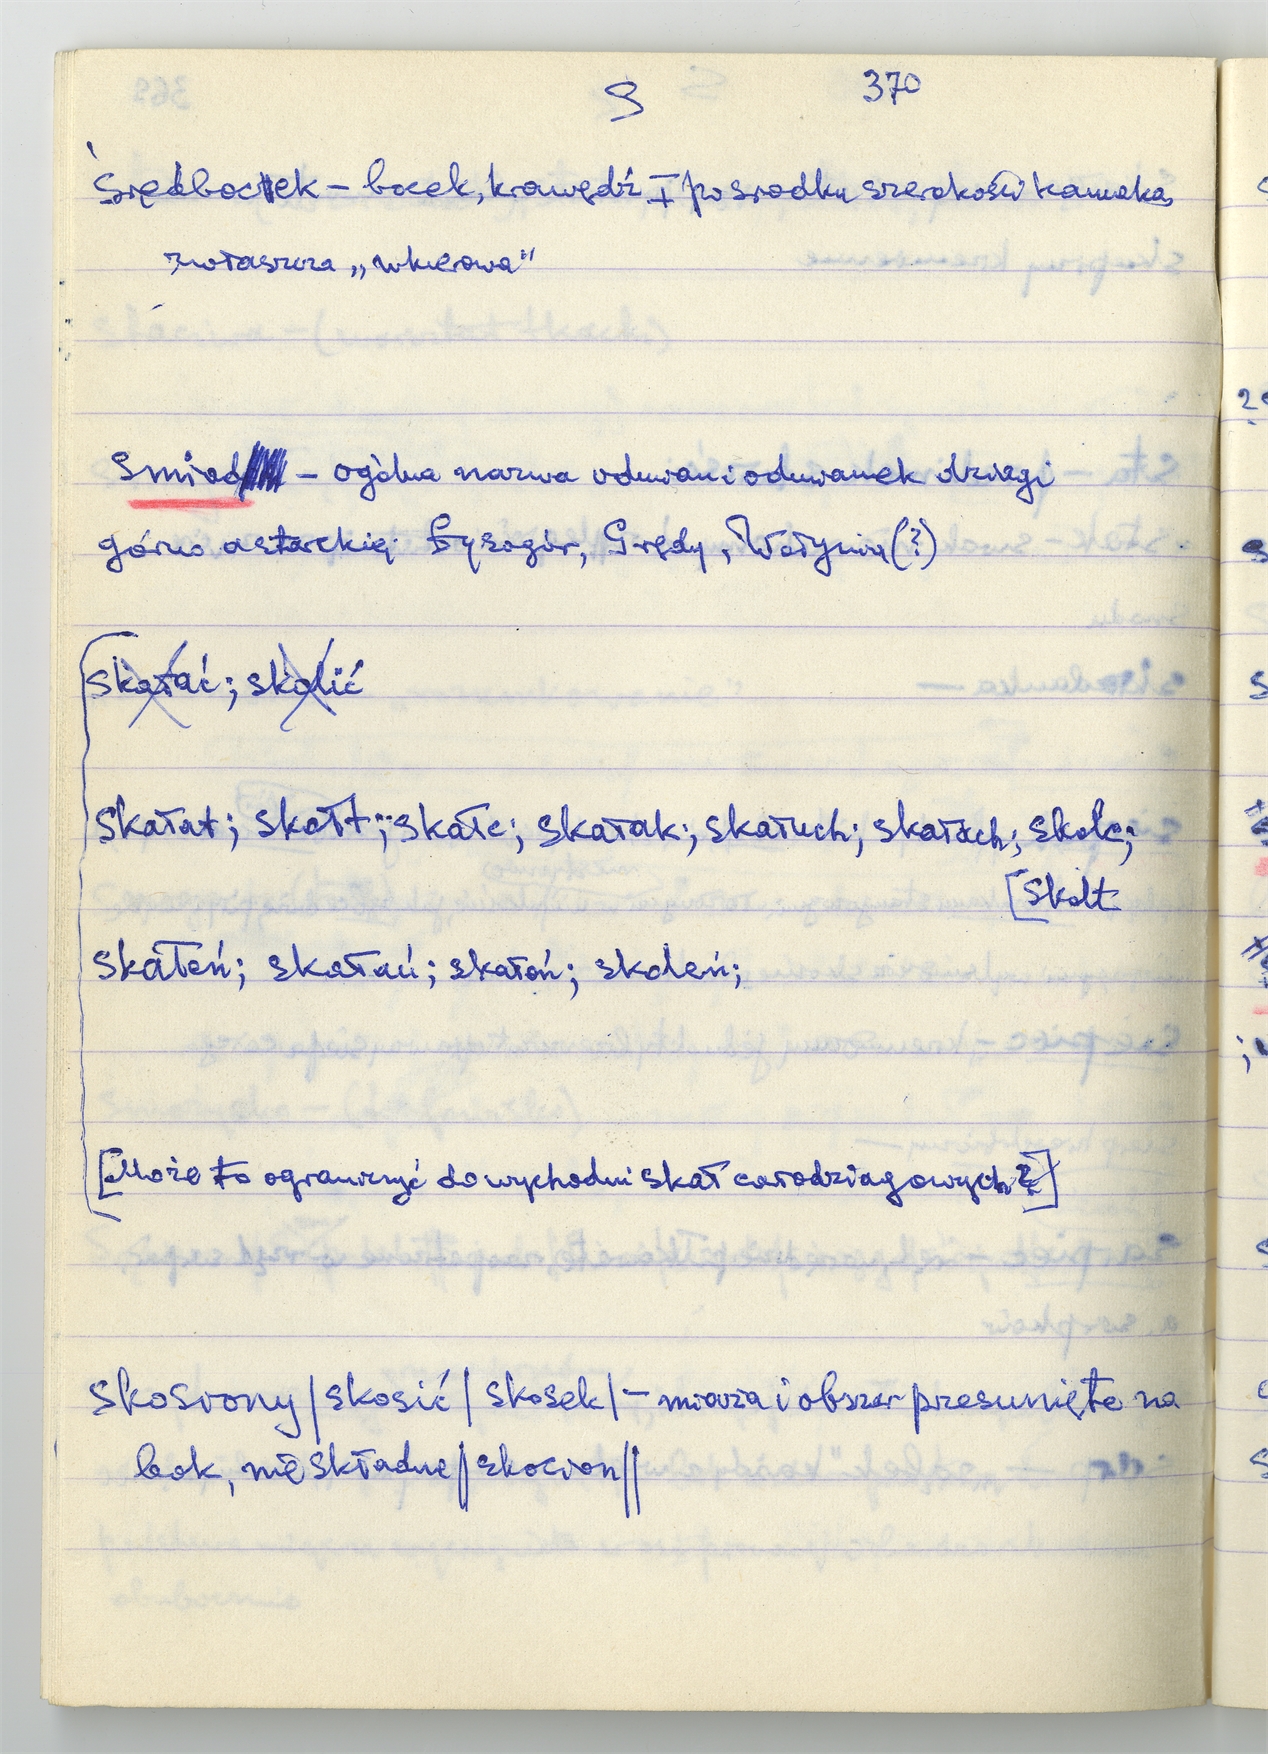 S 370
Śrędboczek – bocek, krawędź I pośrodku szerokości kamaka,
zwłaszcza „wkierowa"
Smiad – ogólna nazwa oduwan i oduwanek dziagi
górno astarckiej Łysogór, Grędy, Wołynia (?)
Skałać; skalić
Skałat; skałt; skałc; skałak; skałuch; skałach; skalc;
[Skalt
Skałeń; skałań; skałoń; skaleń;
[Może to ograniczyć do wychodni skał całodziagowych?]
Skosrony / skosić / skosek / – miaża i obszar przesunięte na
bok, nie składne / skocron //